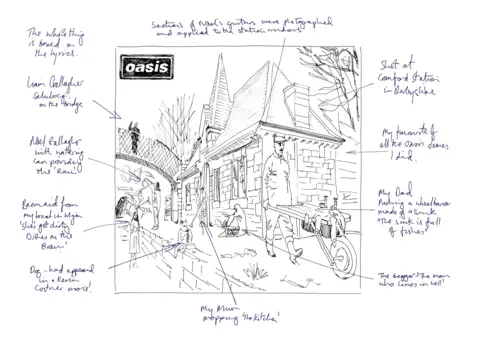 Sections of Noel's guitars were photographed
and applied to the station windows
The whole thing
is based on
the lyrics.
Liam Gallagher
on the bridge
Noel Gallagher
with watering
can providing
the 'Rain'
Barmaid from
my local in Wigan
'She's got dirty
Dishes on the
Brain'
Dog - had appeared
in a Kevin
Costner movie!
oasis
Shot at
Cromford Station
in Derbyshire
My favourite of
all the Oasis sleeves
I did.
My Dad
Pushing a wheelbarrow
made of a Sink
The Sink is full
of fishes'
The beggar 'the man
who lives in hell'
My Mum
mopping 'the kitchen'